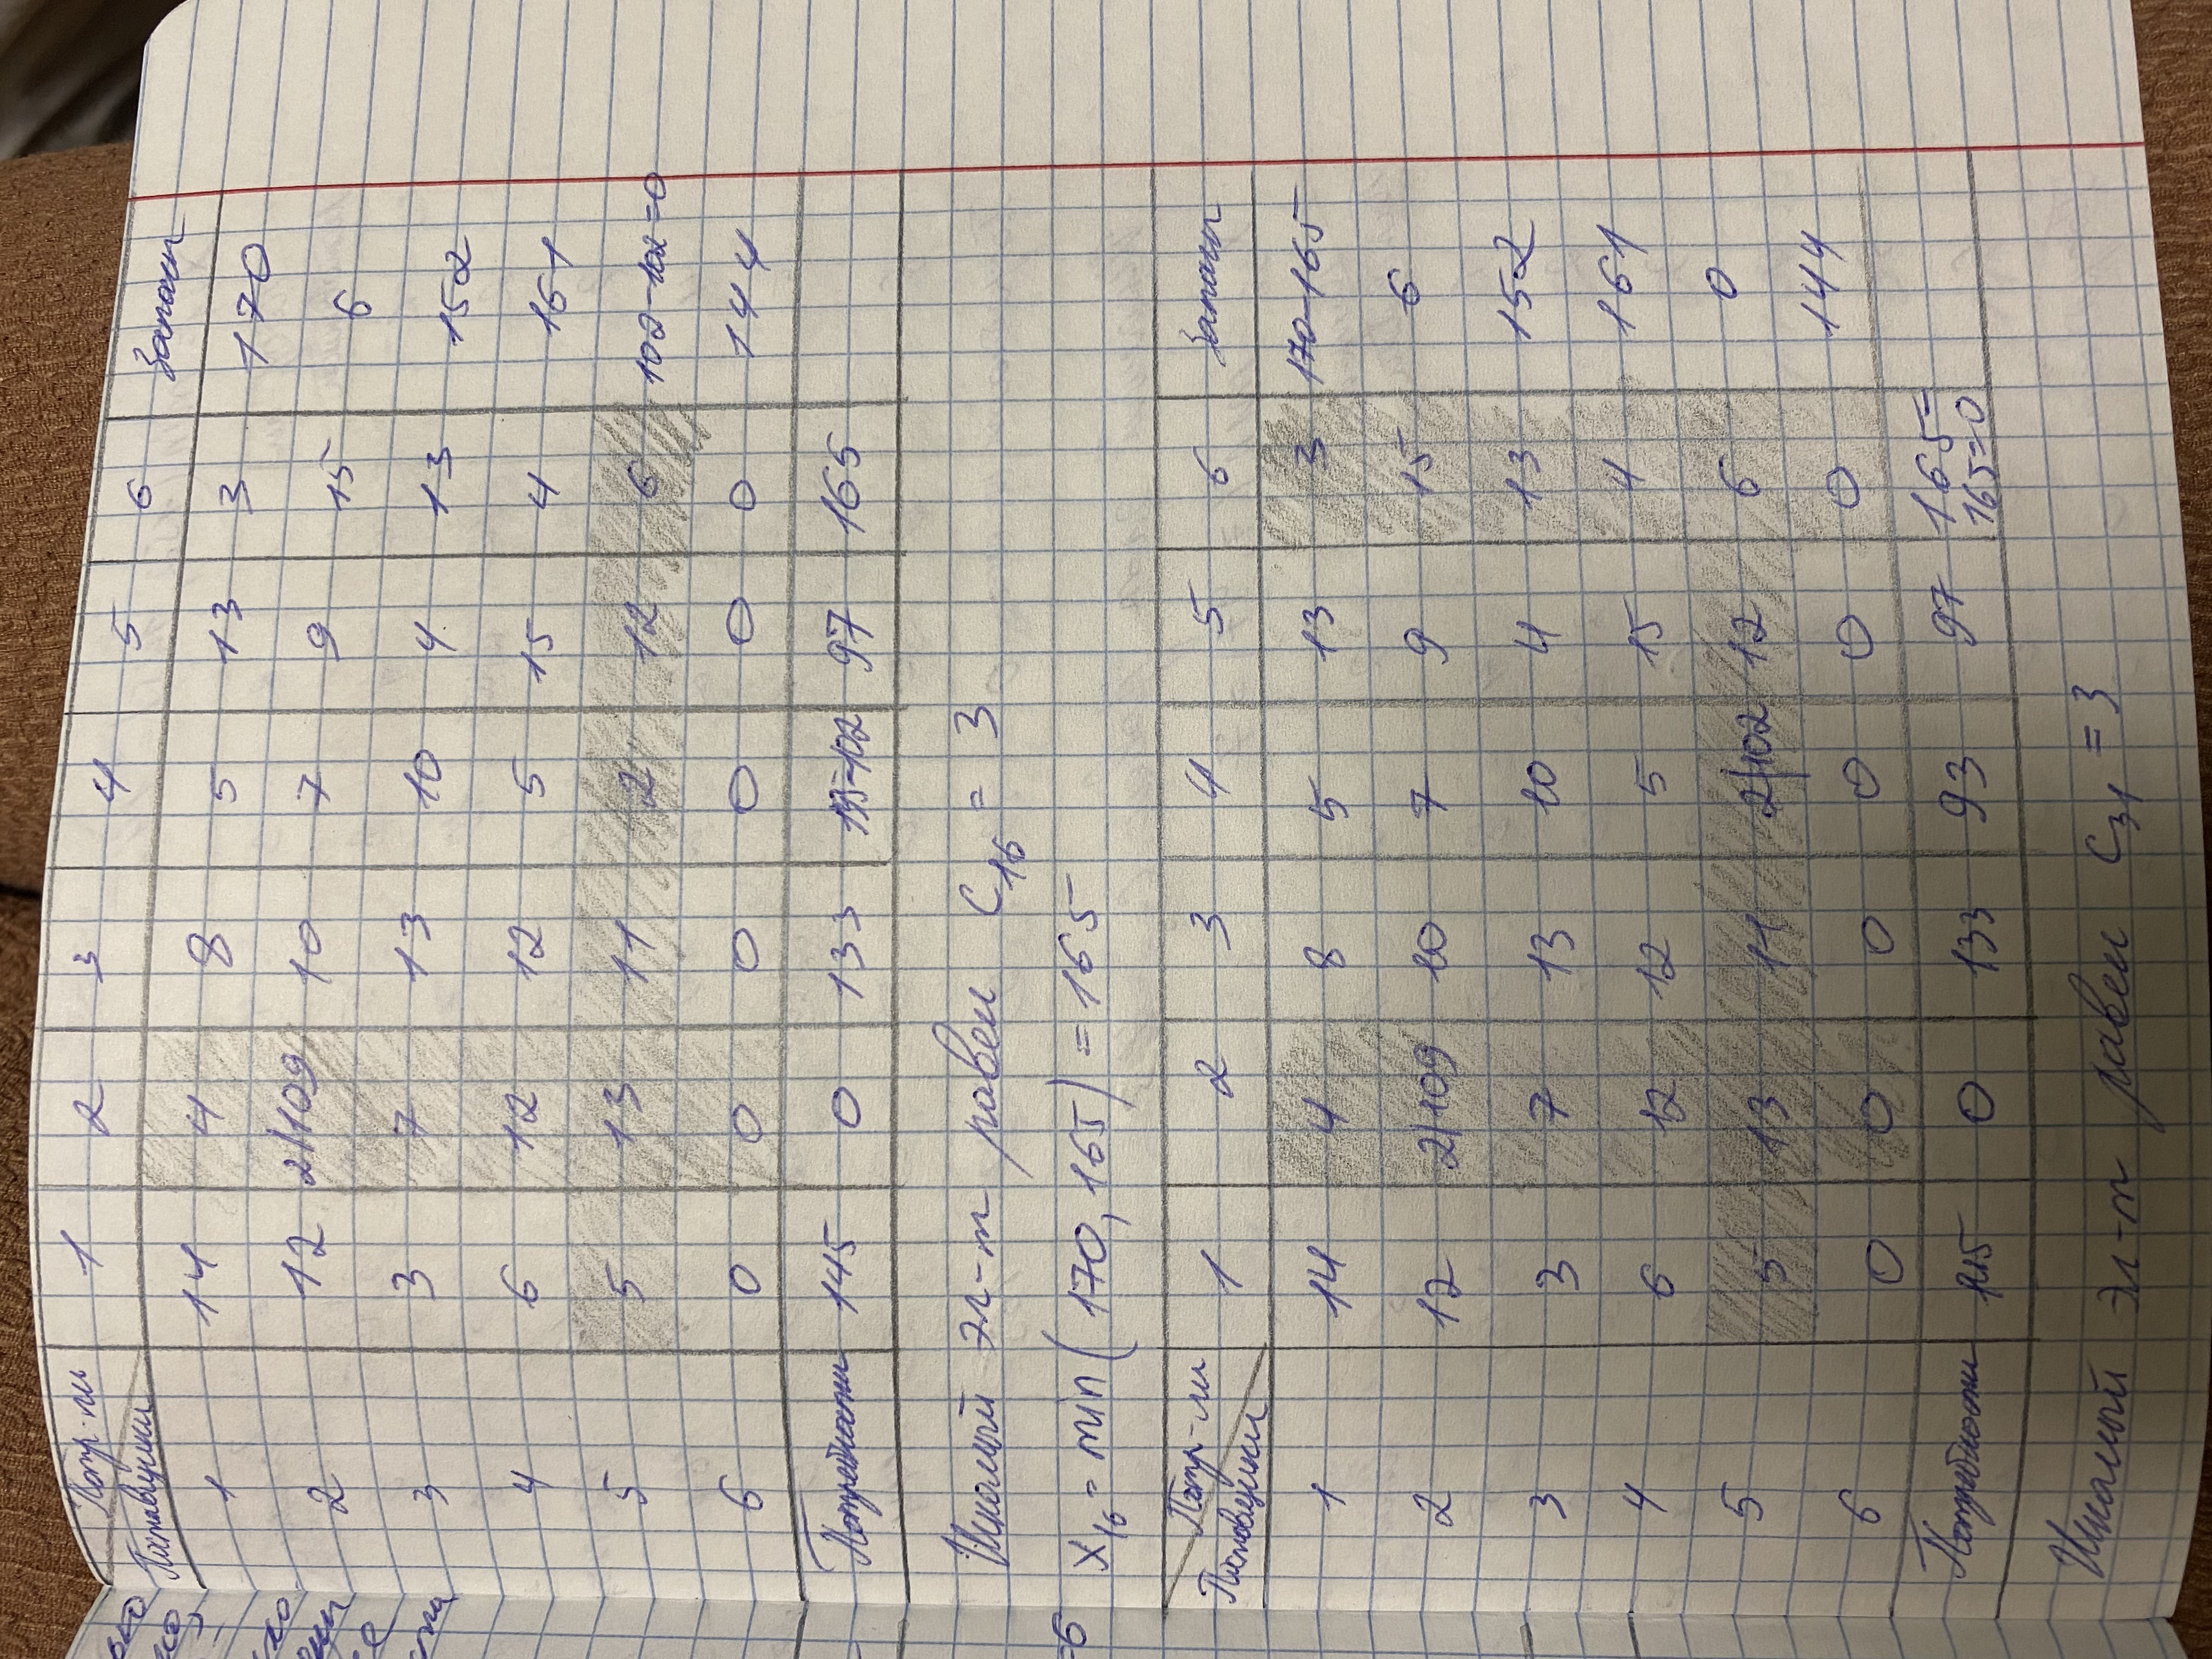 Потр-ли 1 2 3 4 5 6 Запасы
Поставщики
1 14 4 8 5 13 3 170
2 12 2|109 10 7 9 15 6
3 3 7 13 10 4 13 152
4 6 12 12 5 15 4 161
5 5 13 11 2 12 6 102-102=0
6 0 0 0 0 0 0 144
Потребности 145 0 133 195-102 97 165
Искомый эл-т равен c16 = 3
=6
x16 = min(170, 165) = 165
Потр-ли 1 2 3 4 5 6 Запасы
Поставщики
1 14 4 8 5 13 3 170-165
2 12 2|109 10 7 9 15 6
3 3 7 13 10 4 13 152
4 6 12 12 5 15 4 161
5 5 13 11 2|102 12 6 0
6 0 0 0 0 0 0 144
Потребности 145 0 133 93 97 165-
165=0
Искомый эл-т равен c31 = 3